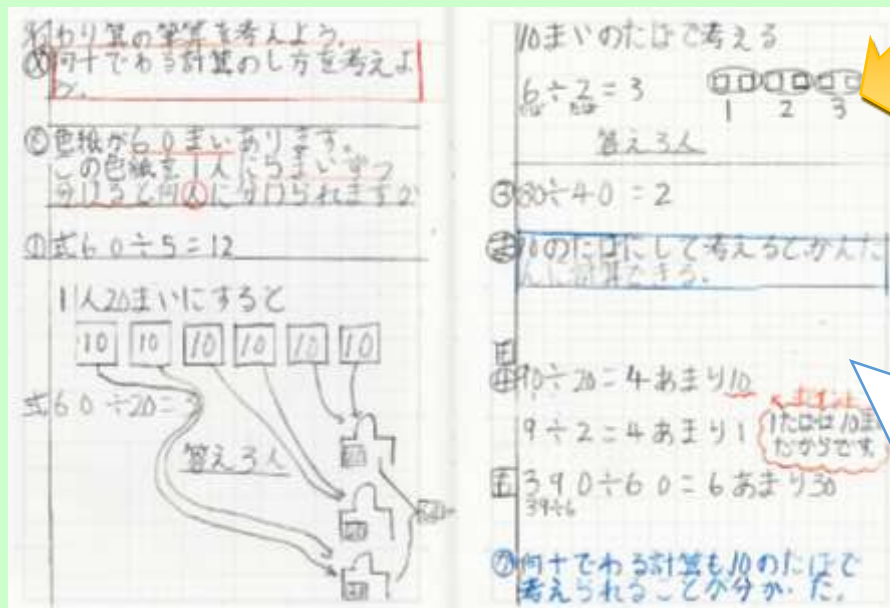 わり算の筆算を考えよう。
め 何十でわる計算のし方を考えよ
う。
色紙が60まいあります。
この色紙を1人に5まいずつ
分けると何人に分けられますか
① 式60÷5=12
1人20まいにすると
10 10 10 10 10 10
式60÷20=3
答え3人
20
20
20
10まいのたばで考える
6÷2=3
たば たば
1 2 3
答え3人
③80÷40=2
ま 10のたばにして考えるとかんた
んに計算できる。
④90÷20=4あまり10
ポイント
9÷2=4あまり1
1たばは10まい
だからです。
390÷60=6あまり30
39÷6
何十でわる計算も10のたばで
考えられることが分かった。